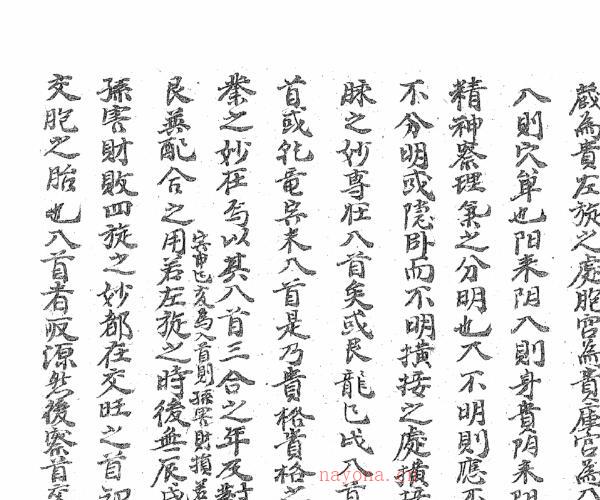 戲為貴左旋之處胞宮為貴庫宮為
入則穴單也阳来阴入則身貴阴来
精神察理氣之分明也入不明則應
不分明或隱卧而不明橫接之處橫
脉之妙專在入首矣或艮龍巳戌入首
首或乾竜宾未入首是乃貴格貴格之
業之妙在焉以其入首三合之年及對
寅申巳亥為入首則孫害財損若
艮兼配合之用若左旋之時後無辰戌
孫害財敗四旋之妙都在交旺之首
交胞之胎也入首者収源然後察首
nayona.jp